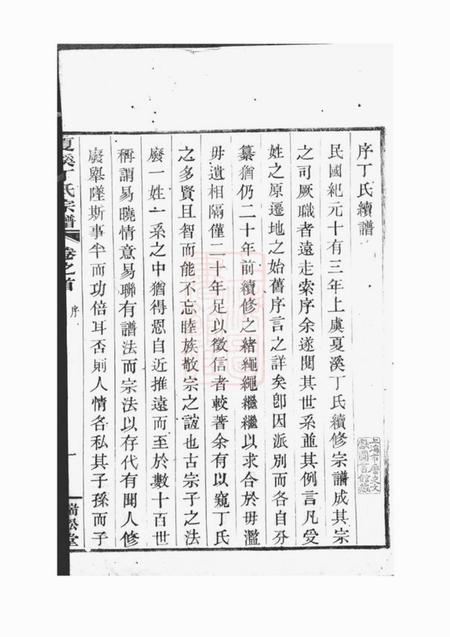 序丁氏續譜
民國紀元十有三年上虞夏溪丁氏續修宗譜成其宗
之司厥職者遠走索序余遂閱其世系並其例言凡受
姓之原遷地之始舊序言之詳矣卽因派別而各自分
纂猶仍二十年前續修之緒繩繩繼繼以求合於毋濫
毋遺相隔僅二十年足以徵信者較著余有以窺丁氏
之多賢且智而能不忘睦族敬宗之誼也古宗子之法
廢一姓一系之中猶得恩自近推遠而至於數十百世
稱謂易曉情意易聯有譜法而宗法以存代有聞人修
廢舉墜斯事半而功倍耳否則人情各私其子孫而子
夏溪丁氏宗譜
卷之首
序
一
松堂
上海市歷史文
獻圖書館藏